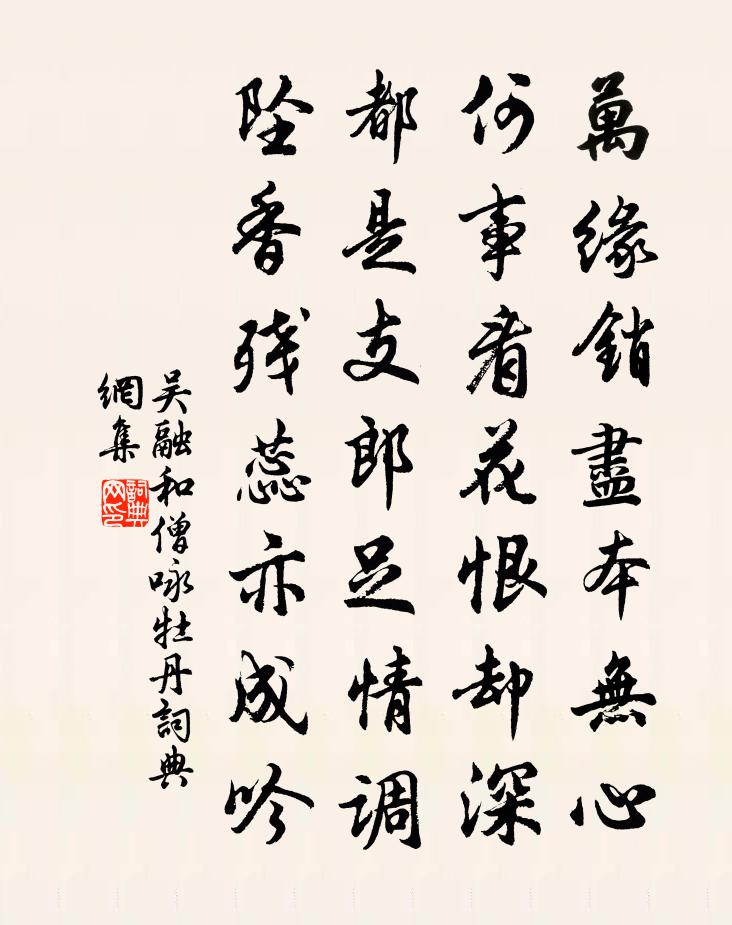 萬缘銷盡本無心
何事看花恨却深
都是支郎足情调
坠香残蕊亦成吟
吴融和僧咏牡丹詞典
網集
詞典
网印